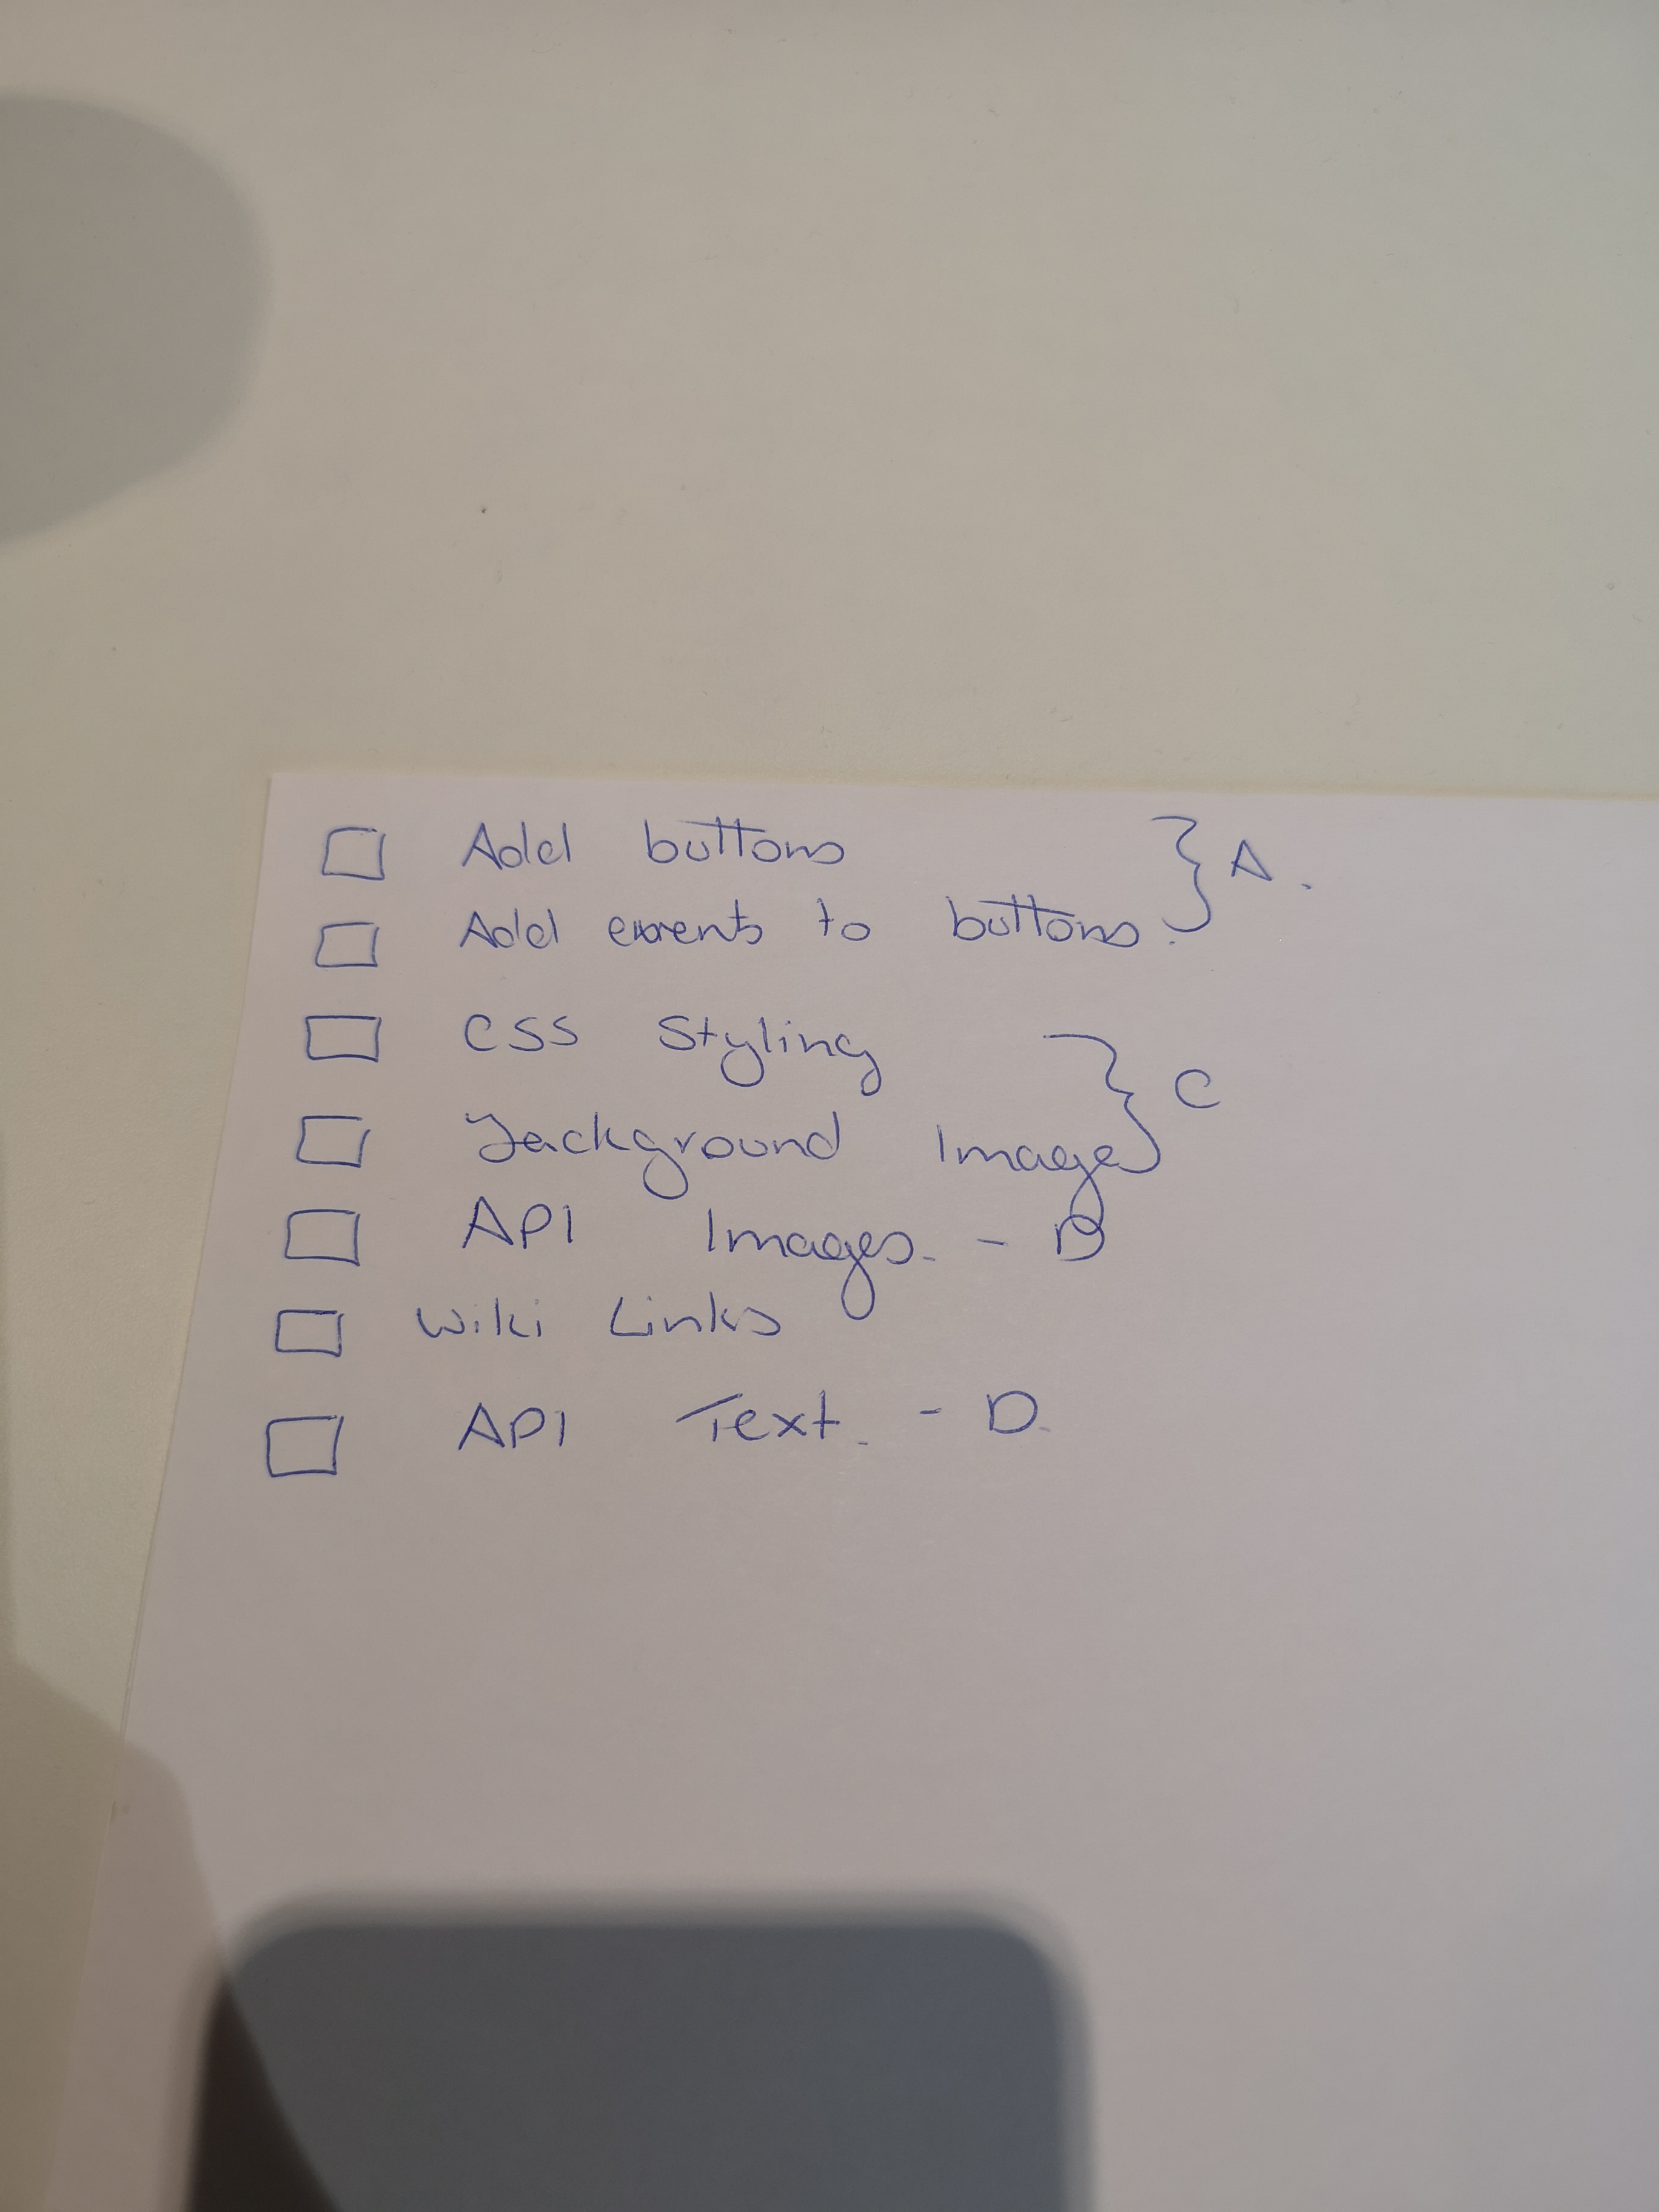 Add buttons } A.
Add events to buttons.
CSS Styling } C
Background Image
API Images. - B
Wiki Links
API Text. - D.